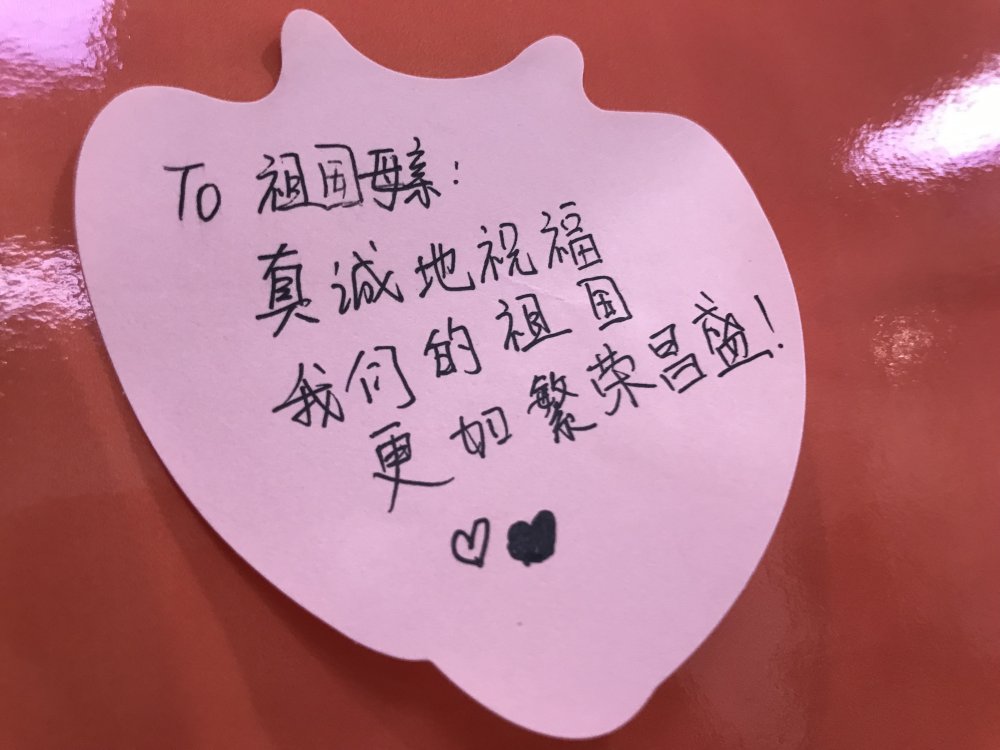 To 祖国母亲:
真诚地祝福
我们的祖国
更加繁荣昌盛!